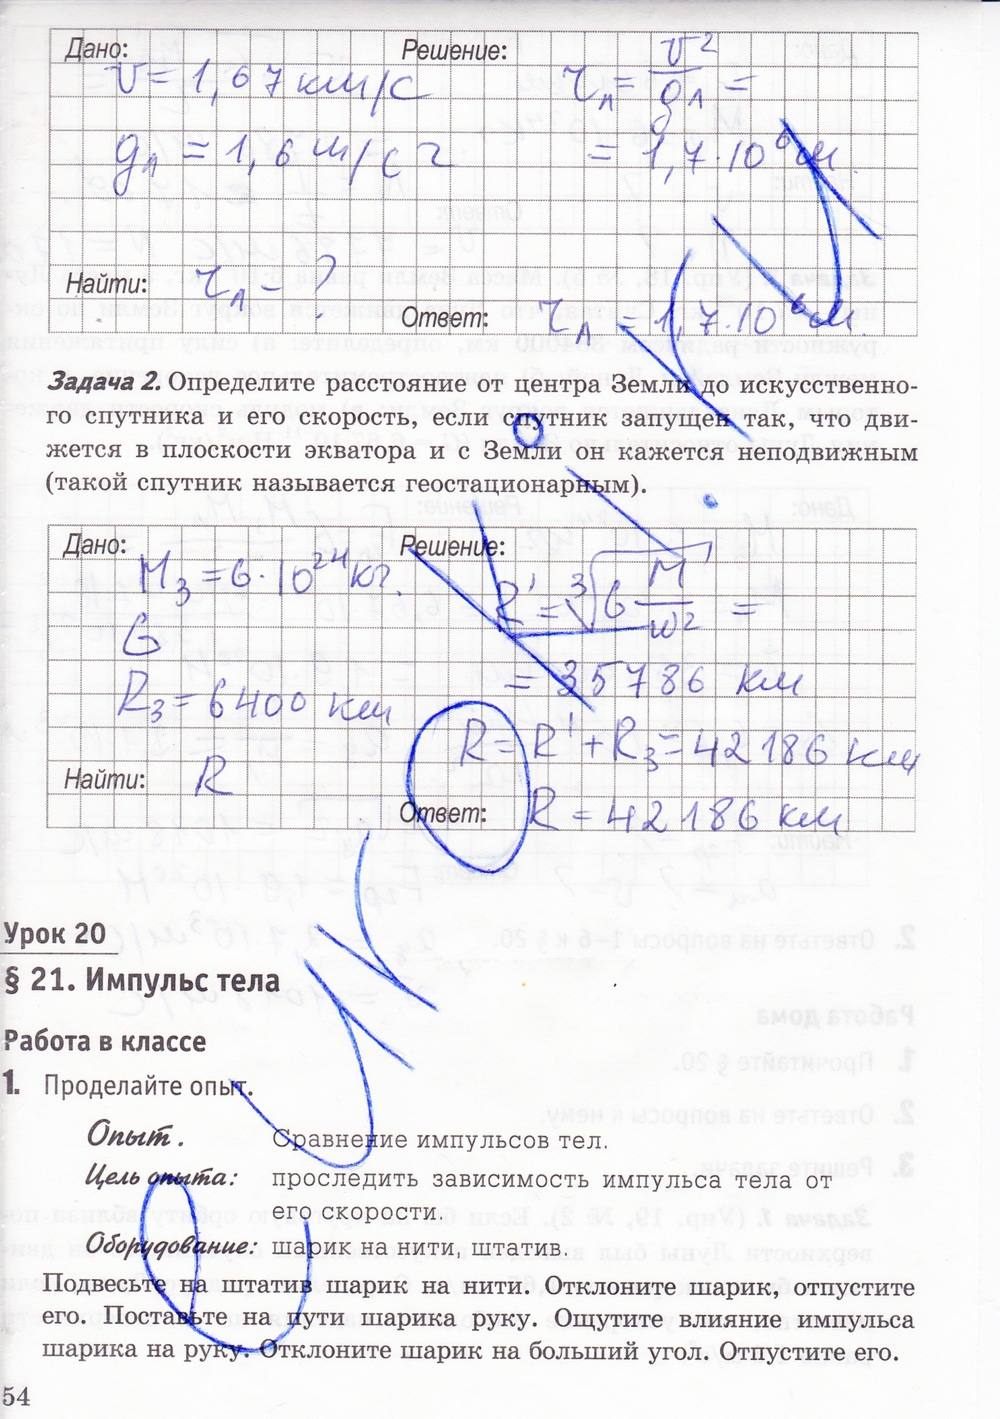 Дано: Решение:
v = 1,67 км/с r л = v²/g л =
g л = 1,6 м/с² = 1,7·10⁶ м.
Найти: r л - ?
Ответ: r л = 1,7·10⁶ м
Задача 2. Определите расстояние от центра Земли до искусственно-
го спутника и его скорость, если спутник запущен так, что дви-
жется в плоскости экватора и с Земли он кажется неподвижным
(такой спутник называется геостационарным).
Дано: Решение:
M₃ = 6·10²⁴ кг. R' = ³√(G M/w²) =
G
= 35786 км
R₃ = 6400 км
R = R' + R₃ = 42186 км
Найти: R
Ответ: R = 42186 км
Урок 20
§ 21. Импульс тела
Работа в классе
1. Проделайте опыт.
Опыт. Сравнение импульсов тел.
Цель опыта: проследить зависимость импульса тела от
его скорости.
Оборудование: шарик на нити, штатив.
Подвесьте на штатив шарик на нити. Отклоните шарик, отпустите
его. Поставьте на пути шарика руку. Ощутите влияние импульса
шарика на руку. Отклоните шарик на больший угол. Отпустите его.
54